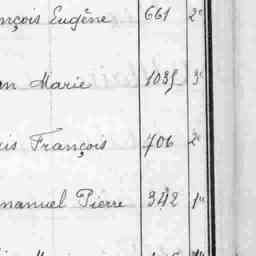 nçois Eugène 661 2e
n Marie 1035 3e
is François 706 2e
nanuel Pierre 342 1e